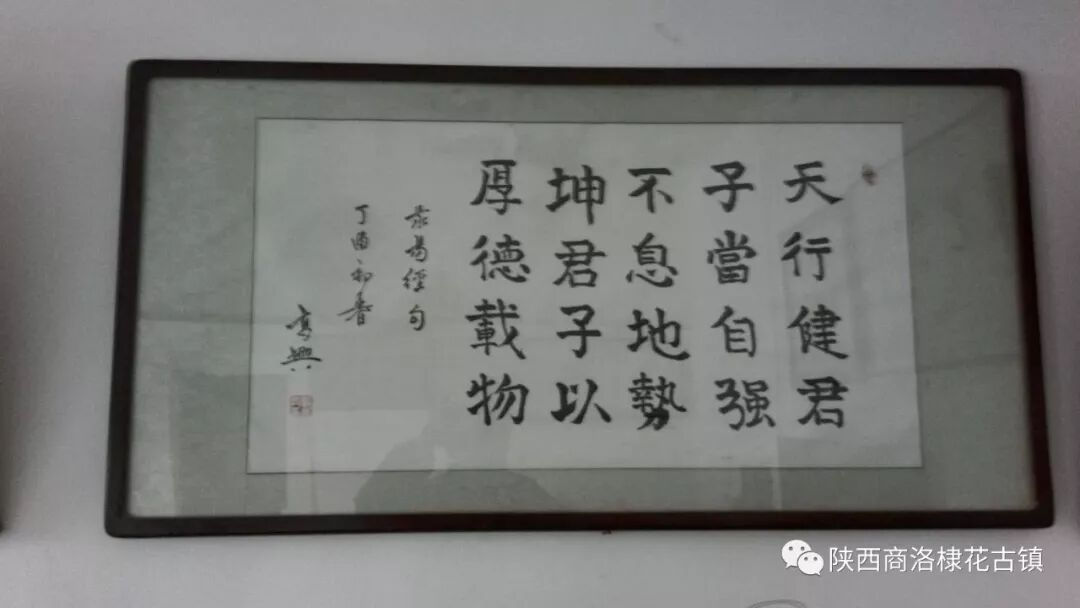 天行健君
子當自强
不息地勢
坤君子以
厚德載物
录易經句
丁酉初春
陕西商洛棣花古镇